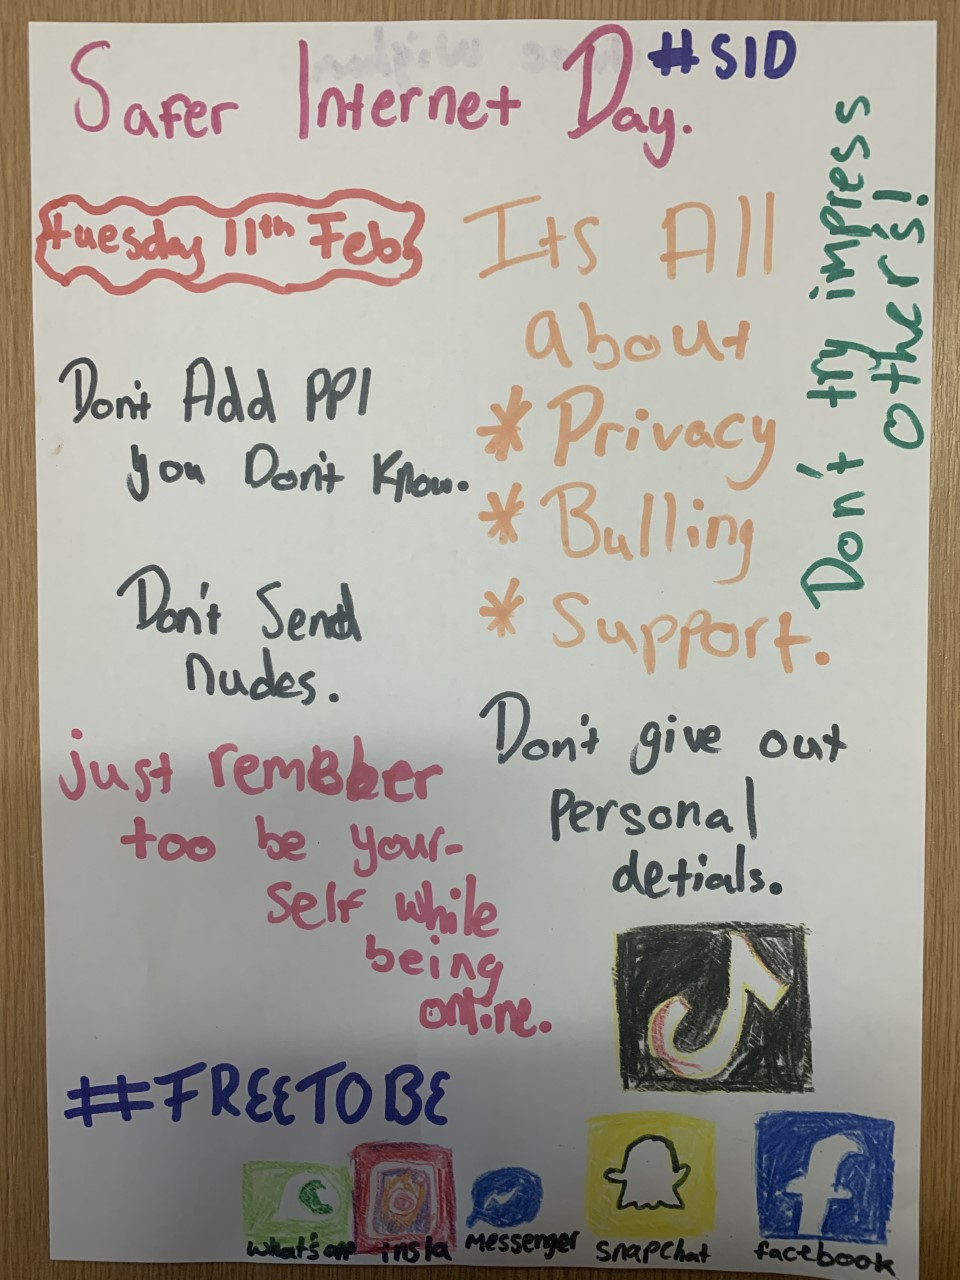 Safer Internet Day.
#SID
tuesday 11th Feb.
Its All
about
* Privacy
* Bulling
* Support.
Don't try impress
other's!
Don't Add PPl
you Don't Know.
Don't Send
nudes.
Don't give out
Personal
detials.
just remember
too be your-
self while
being
online.
#FREETOBE
What's app
insta
Messenger
snapchat
facebook